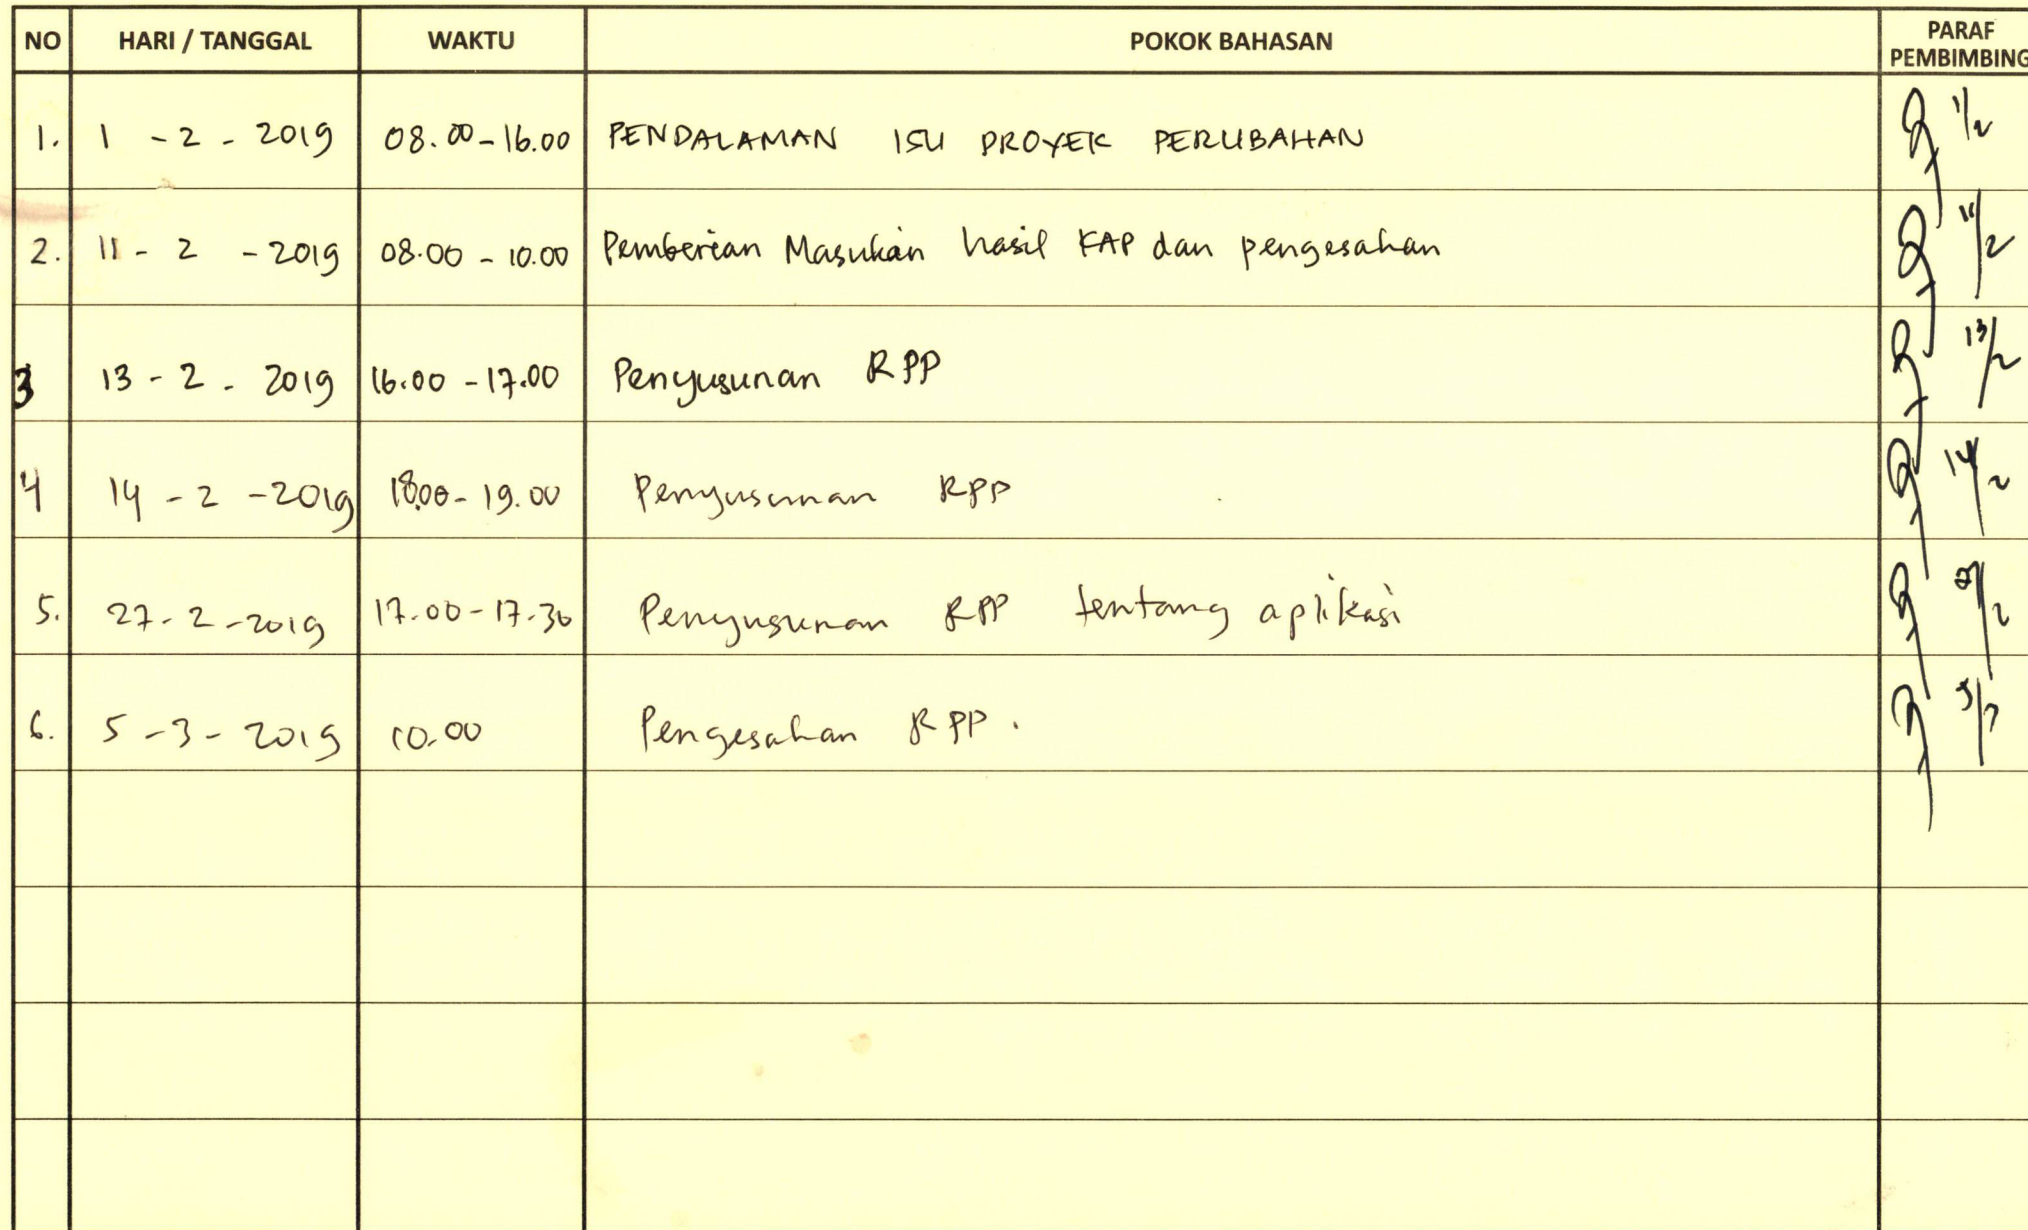 NO HARI / TANGGAL WAKTU POKOK BAHASAN PARAF PEMBIMBING
1. 1 - 2 - 2019 08.00 - 16.00 PENDALAMAN ISU PROYEK PERUBAHAN 1/2
2. 11 - 2 - 2019 08.00 - 10.00 Pemberian Masukan hasil KAP dan pengesahan 11/2
3 13 - 2 - 2019 16.00 - 17.00 Penyusunan RPP 13/2
4 14 - 2 - 2019 18.00 - 19.00 Penyusunan RPP 14/2
5. 27 - 2 - 2019 17.00 - 17.30 Penyusunan RPP tentang aplikasi 27/2
6. 5 - 3 - 2019 10.00 Pengesahan RPP. 5/3